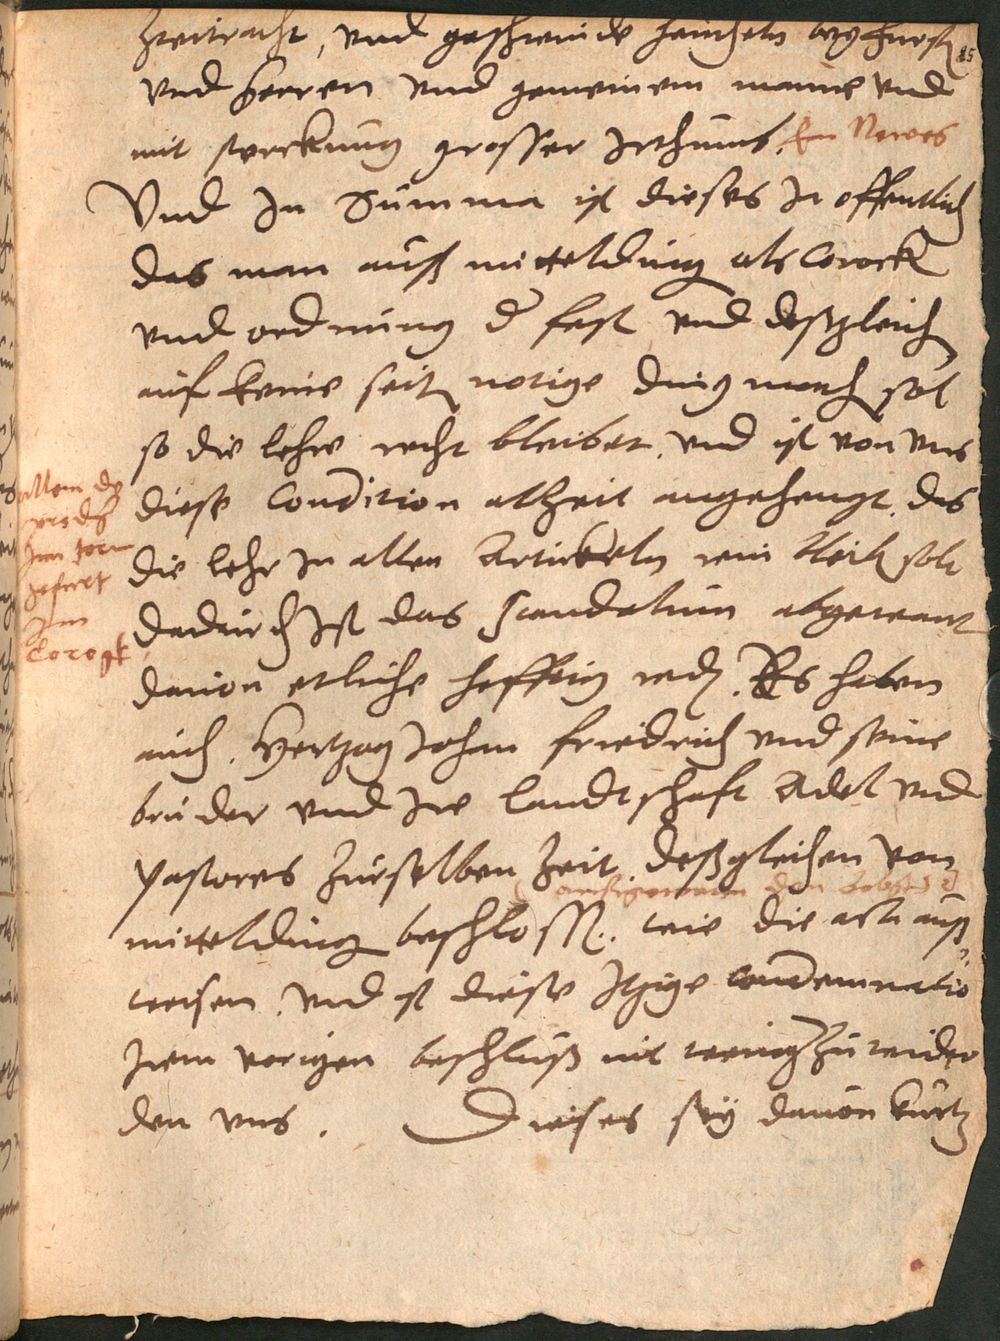 zweitracht, vnd geschwinde heucheln bey furst
85
vnd herren vnd gemeinem manne vnd
mit sterckung grosser Irthumb. Ein Newes
Vnd In Summa ist dieses In offentlich
das man auß mittelding als Corock
vnd ordnung d fest vnd deßgleich
auf keine seit notige ding mach sol
so die lehre recht bleibet. vnd ist von vns
diese Condition alzeit angehengt. das
die lehr In allen Artickeln rein bleib soll
dadurch Ist das scandalum abgewant
dauon etliche hefftig red. Es haben
auch. Hertzog Johan Friedrich vnd seine
bruder vnd Ire landtschaft Adel vnd
Pastores zurselben zeit. deßgleichen von
mittelding beschloss. wie die acta auß
weisen. vnd ist diese Itzige Condemnatio
Irem vorigen beschluß nit wenig zu wider
den vns. Dieses sey dauon kurtz
allein
Corogk